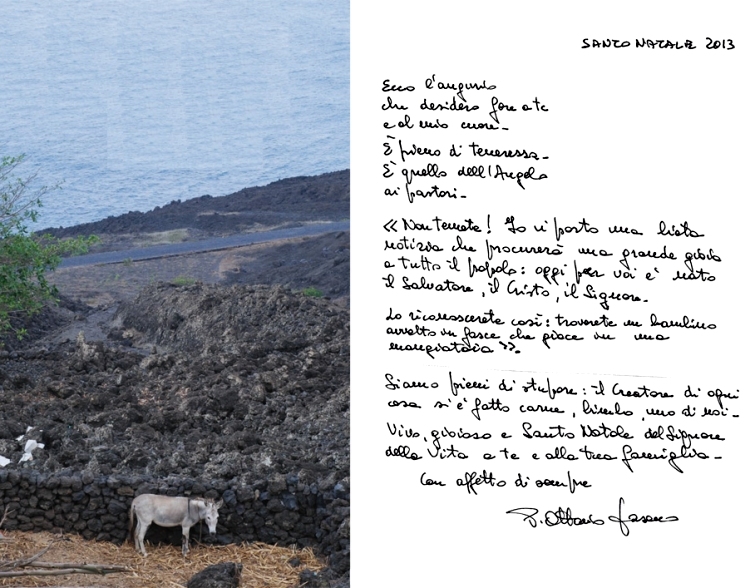 SANTO NATALE 2013
Ecco l'augurio
che desidero fare a te
e al mio cuore_
È pieno di tenerezza_
È quello dell'Angelo
ai pastori_
«Non temete! Io vi porto una lieta
notizia che procurerà una grande gioia
a tutto il popolo: oggi per voi e' nato
il Salvatore, il Cristo, il Signore_
Lo riconoscerete così: troverete un bambino
avvolto in fasce che giace in una
mangiatoia».
Siamo pieni di stupore: il Creatore di ogni
cosa si e' fatto carne, bimbo, uno di noi_
Vivo, gioioso e Santo Natale del Signore
della Vita a te e alla tua famiglia_
Con affetto di sempre
P. Ottavio Fasano